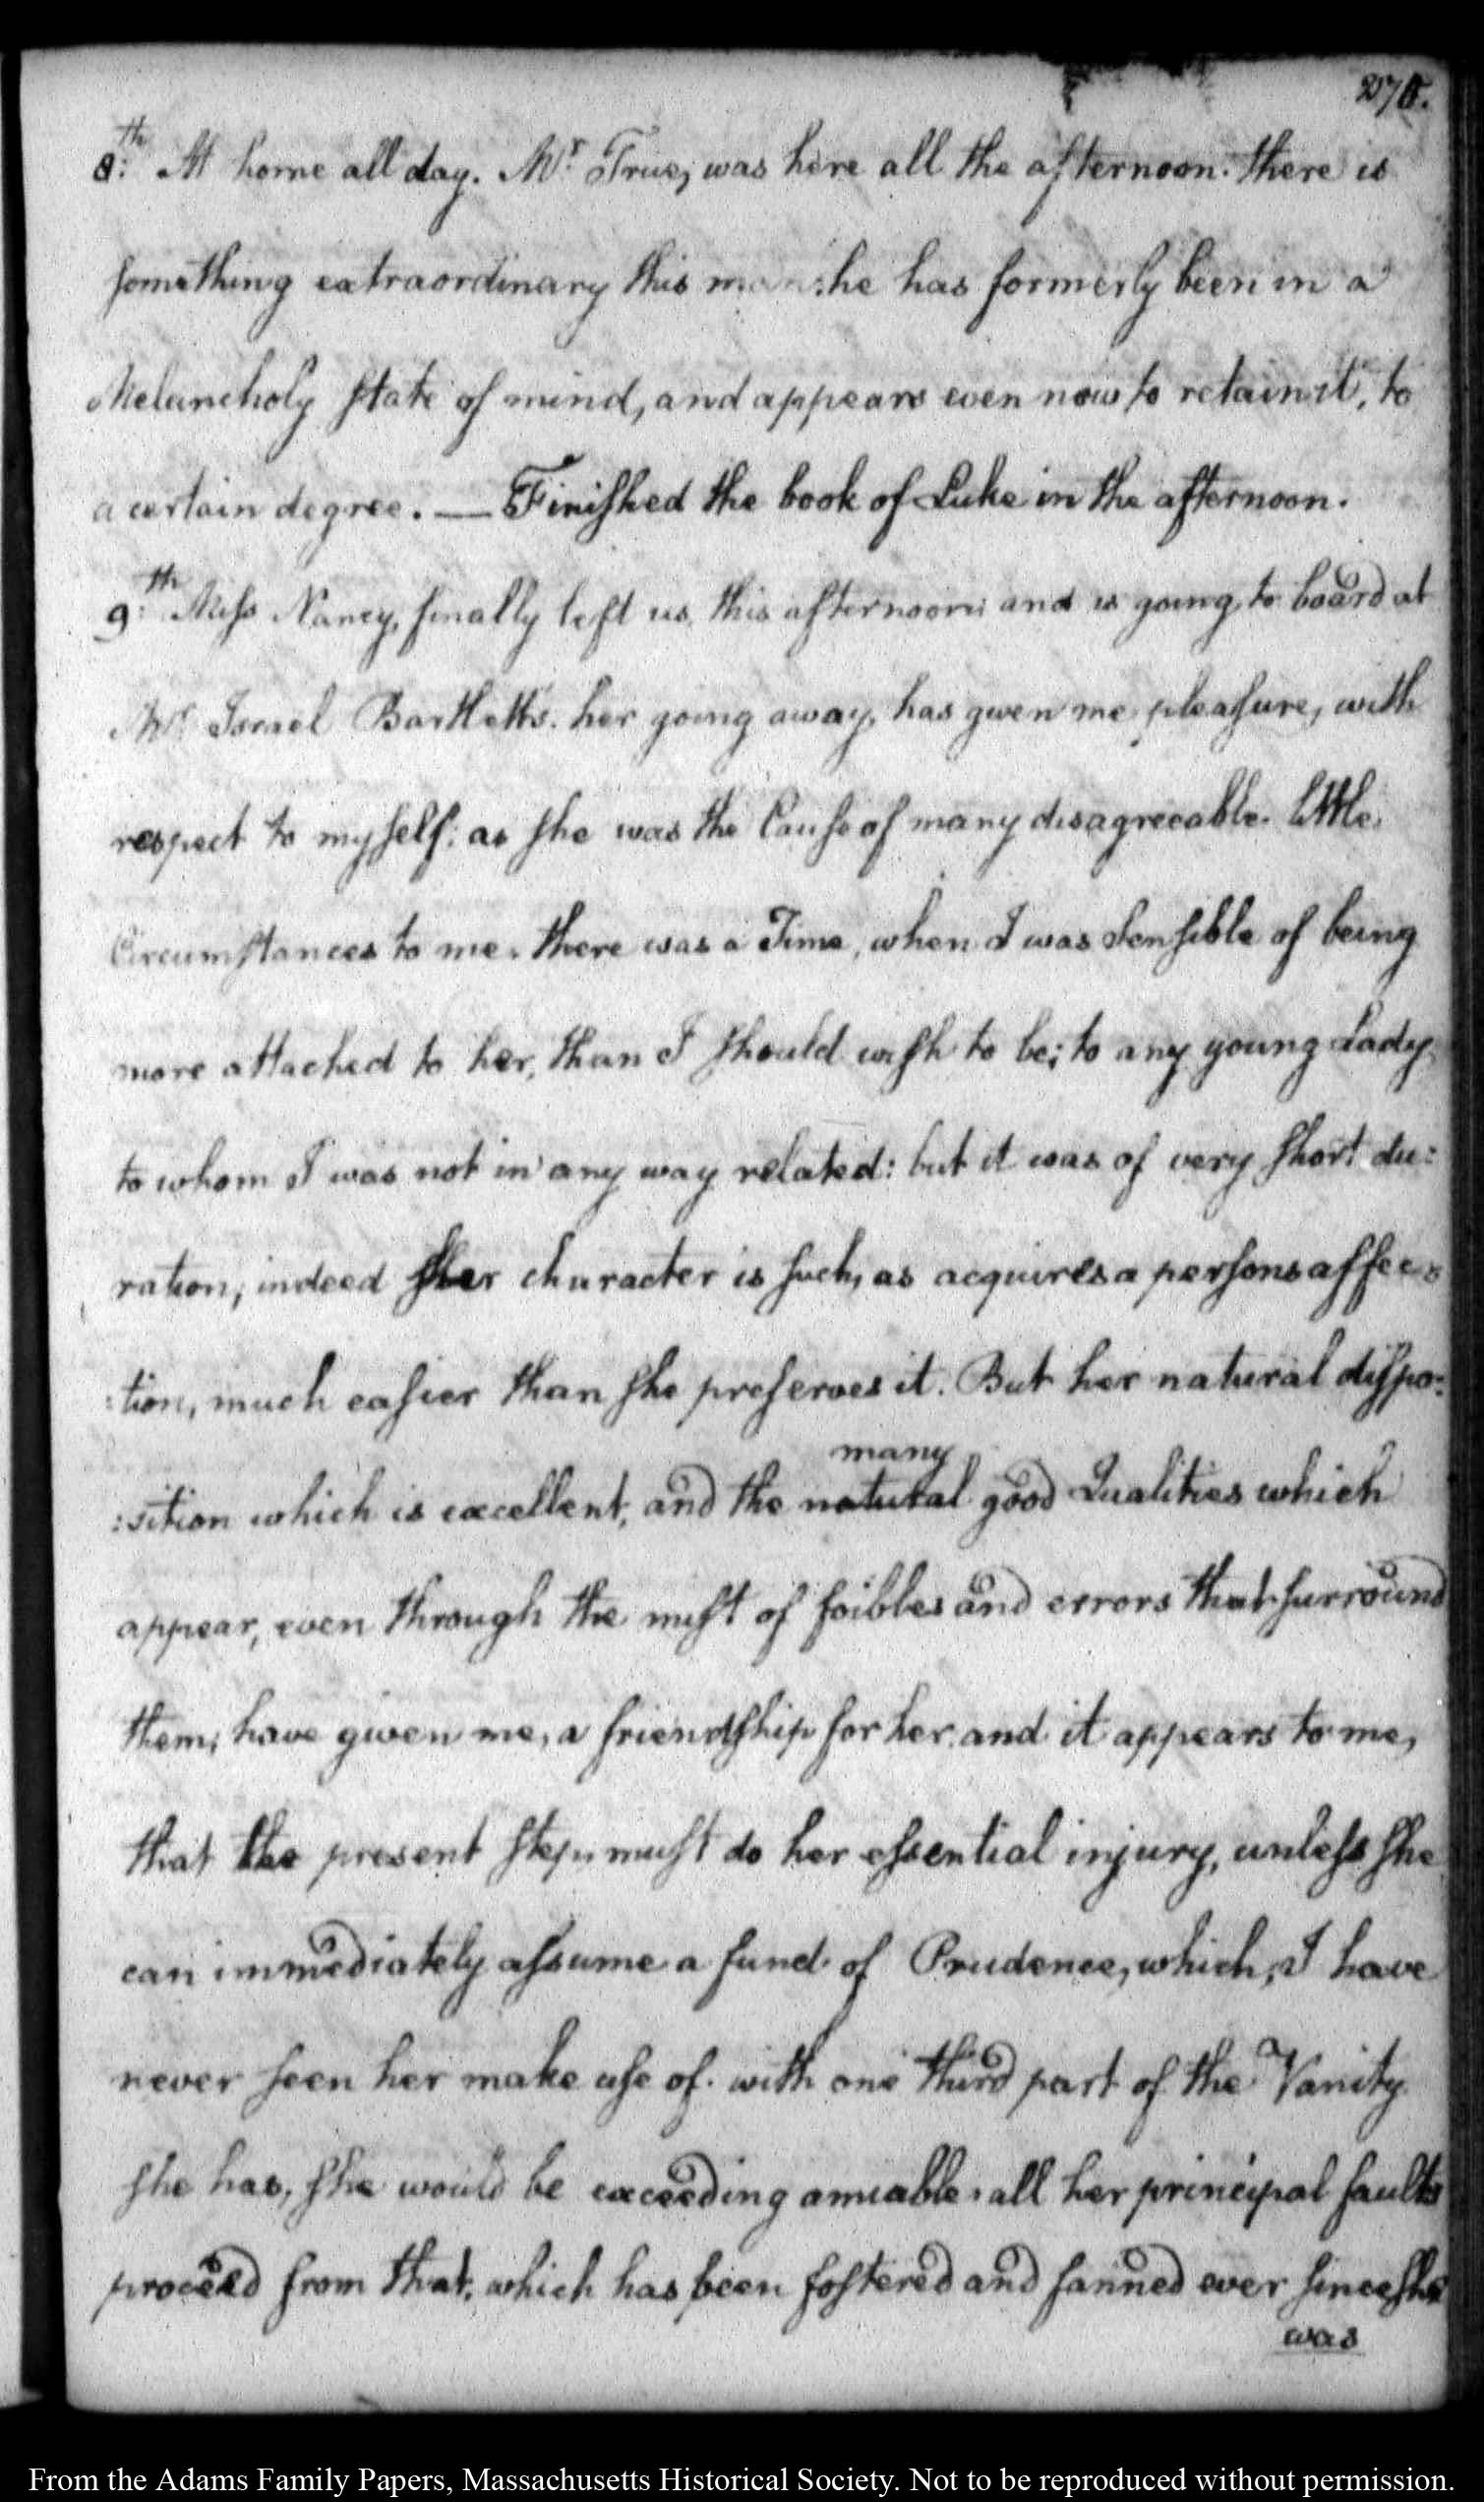 270.
8:th At home all day. Mr. True, was here all the afternoon. there is
something extraordinary this man: he has formerly been in a
Melancholy state of mind, and appears even now to retain it, to
a certain degree. — Finished the book of Luke in the afternoon.
9:th Miss Nancy, finally left us, this afternoon: and is going to board at
Mr. Israel Bartlett's. her going away, has given me pleasure, with
respect to myself: as she was the Cause of many disagreeable little
Circumstances to me. there was a Time, when I was Sensible of being
more attached to her, than I should wish to be; to any young Lady,
to whom I was not in any way related: but it was of very short du:
ration, indeed her character is such, as acquires a persons affec:
:tion, much easier than she preserves it. But her natural dispo:
many
:sition which is excellent, and the natural good Qualities which
appear, even through the mist of foibles and errors that surround
them, have given me, a friendship for her. and it appears to me,
that the present step, must do her essential injury, unless she
can immediately assume a fund of Prudence, which, I have
never seen her make use of. with one third part of the Vanity
she has, she would be exceeding amiable. all her principal faults
proceed from that. which has been fostered and fanned ever since she
was
From the Adams Family Papers, Massachusetts Historical Society. Not to be reproduced without permission.